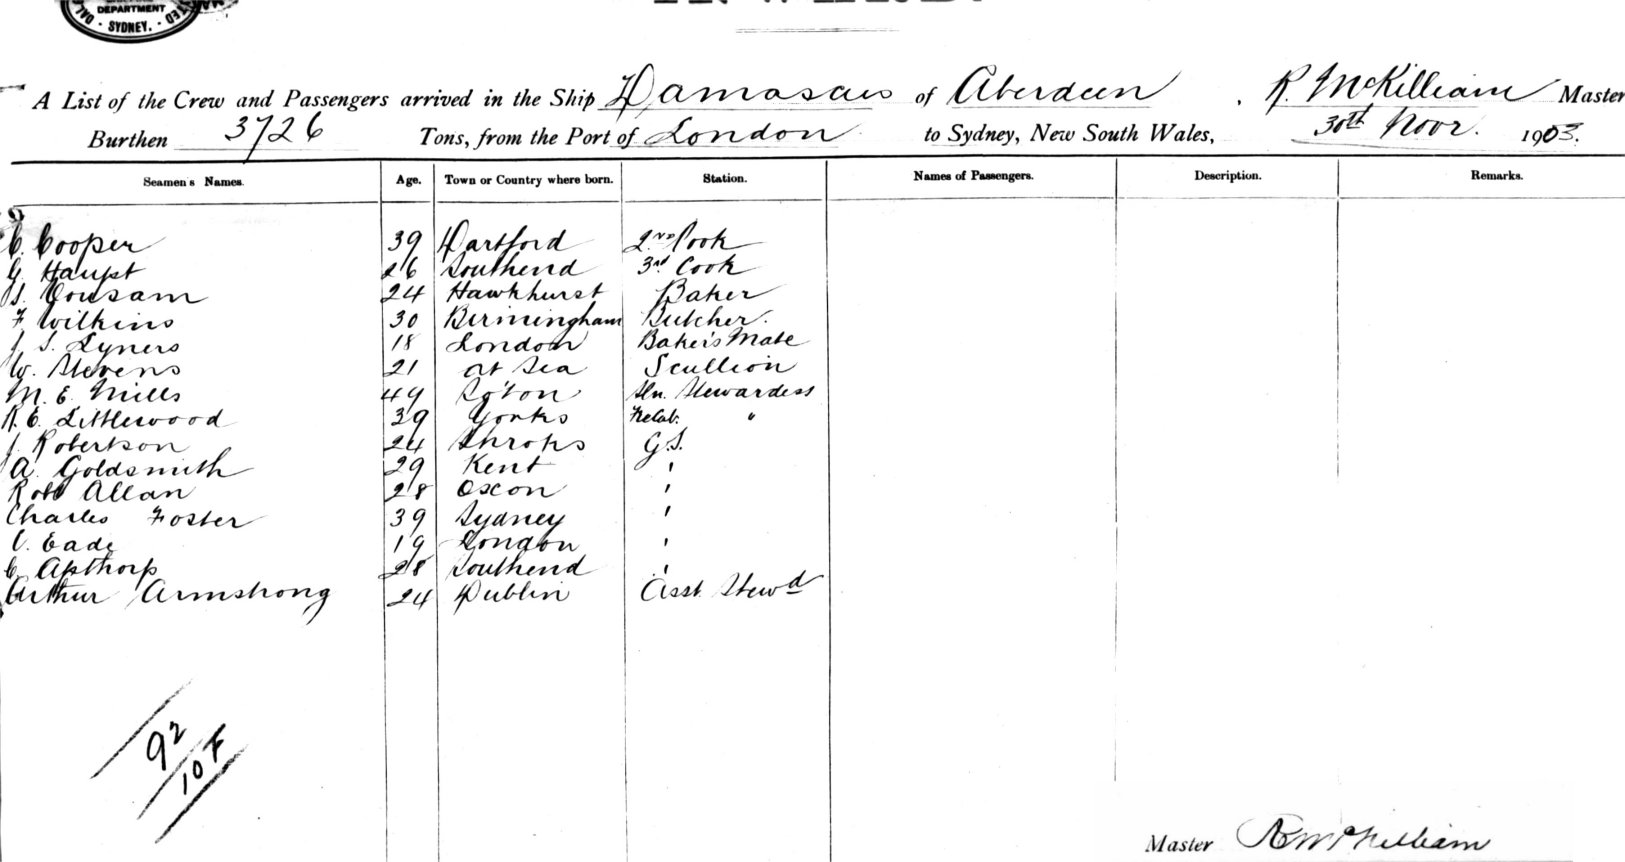 DEPARTMENT
SYDNEY.
A List of the Crew and Passengers arrived in the Ship Damascus of Aberdeen, R. McKilliam Master
Burthen 3726 Tons, from the Port of London to Sydney, New South Wales, 30th Novr. 1903.
Seamen's Names. Age. Town or Country where born. Station. Names of Passengers. Description. Remarks.
C. Cooper 39 Dartford 2nd Cook
G. Haupt 26 Southend 3rd Cook
Cousam 24 Hawkhurst Baker
F Wilkins 30 Birmingham Butcher.
J. S. Lyners 18 London Baker's Mate
W. Stevens 21 at Sea Scullion
M. E. Mills 49 So'ton Stewardess
R. E. Littlewood 39 Yorks "
J. Robertson 24 Shrops G.S.
A. Goldsmith 29 Kent '
Robt Allan 28 Oxon '
Charles Foster 39 Sydney '
C. Eade 19 London '
C. Apthorp 28 Southend '
Arthur Armstrong 24 Dublin Asst Stewd
92
10 F
Master R McKilliam